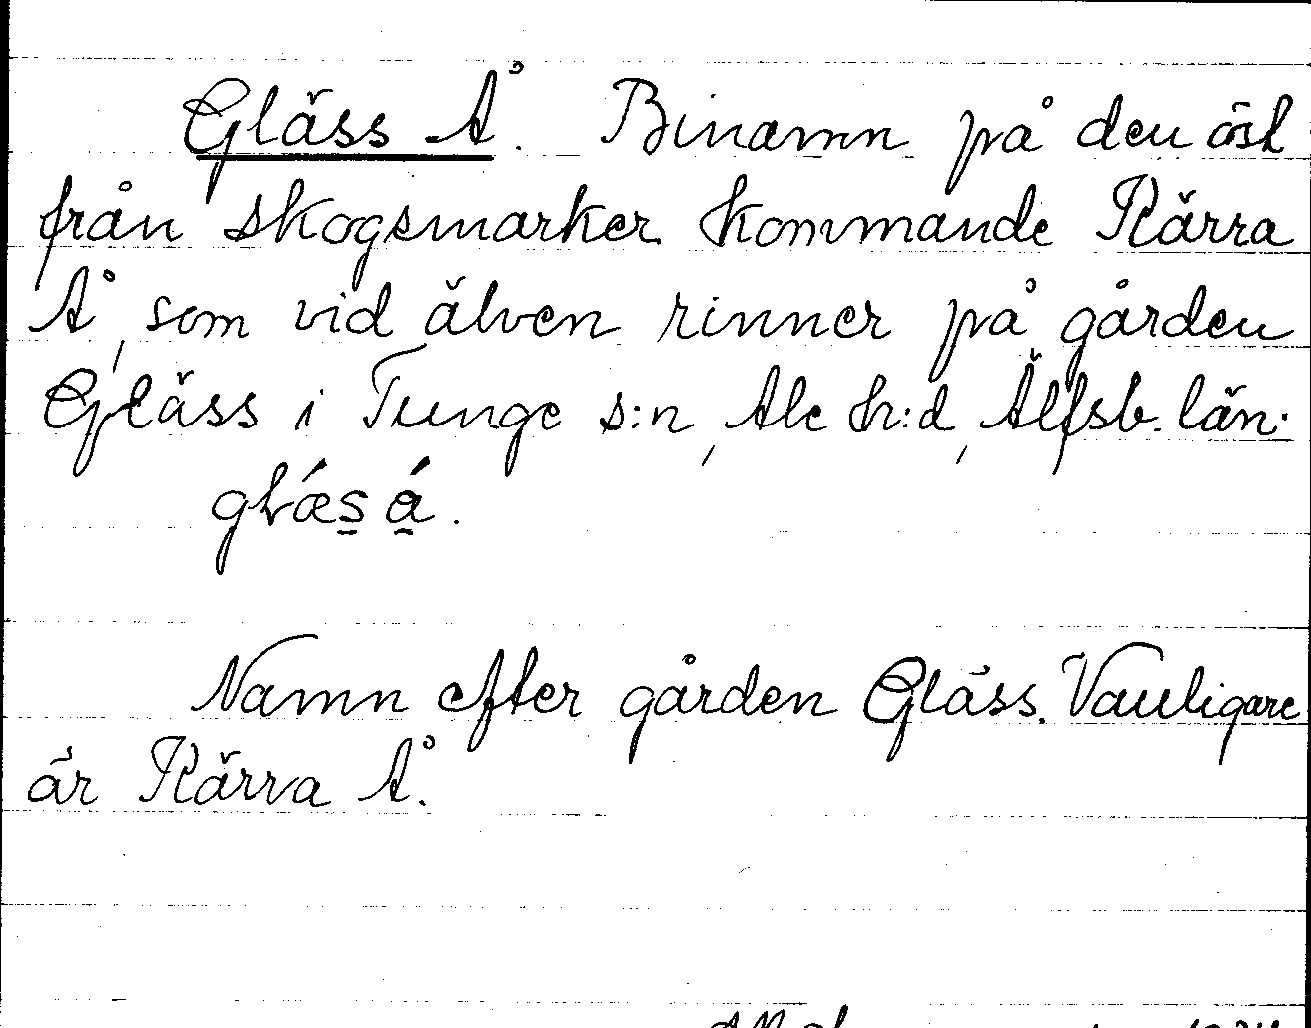 Gläss Å. Binamn på den öst
från skogsmarker kommande Kärra
Å, som vid älven rinner på gården
Gläss i Tunge s:n, Ale h:d, Älfsb. län.
glǽs á.
Namn efter gården Gläss. Vanligare
är Kärra Å.